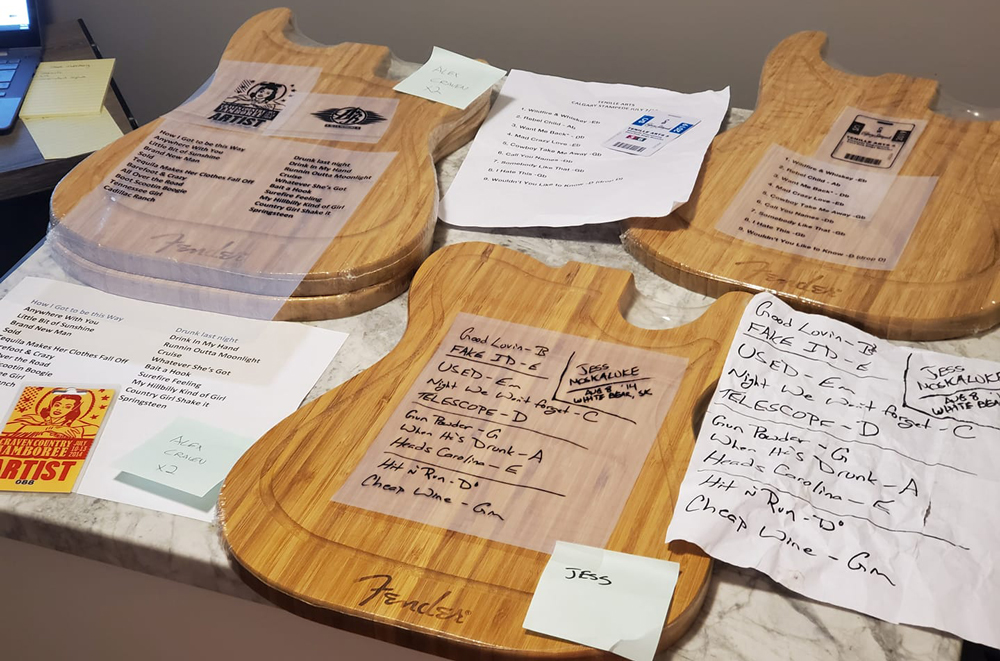 ARTIST
How I Got to be this Way
Anywhere With You
Little Bit of Sunshine
Brand New Man
Sold
Tequila Makes Her Clothes Fall Off
Barefoot & Crazy
All Over the Road
Boot Scootin Boogie
Tennessee Girl
Cadillac Ranch
Drunk last night
Drink in My Hand
Cruise
Runnin Outta Moonlight
Whatever She's Got
Bait a Hook
Surefire Feeling
My Hillbilly Kind of Girl
Country Girl Shake it
Springsteen
Fender
ALEX
CRAVEN
X2
TENILLE ARTS
CALGARY STAMPEDE JULY
1. Wildfire & Whiskey -Eb
2. Rebel Child - Ab
3. Want Me Back -Gb
4. Mad Crazy Love -Eb
5. Cowboy Take Me Away -Gb
6. Call You Names -Gb
7. Somebody Like That -Gb
8. I Hate This -Gb
9. Wouldn't You Like to Know -D (drop D)
1. Wildfire & Whiskey -Eb
2. Rebel Child - Ab
3. Want Me Back -Gb
4. Mad Crazy Love -Eb
5. Cowboy Take Me Away -Gb
6. Call You Names -Gb
7. Somebody Like That -Gb
8. I Hate This -Gb
9. Wouldn't You Like to Know -D (drop D)
Fender
How I Got to be this Way
Anywhere With You
Little Bit of Sunshine
Brand New Man
Sold
Tequila Makes Her Clothes Fall Off
Barefoot & Crazy
Over the Road
Scootin Boogie
Girl
Ranch
Drunk last night
Drink in My Hand
Runnin Outta Moonlight
Cruise
Whatever She's Got
Bait a Hook
Surefire Feeling
My Hillbilly Kind of Girl
Country Girl Shake it
Springsteen
CRAVEN COUNTRY
JAMBOREE
JULY
10-13
2014
ARTIST
088
ALEX
CRAVEN
X2
Good Lovin - B
FAKE ID - E
USED - Em
Night We Won't forget - C
TELESCOPE - D
Gun Powder - G
When He's Drunk - A
Heads Carolina - E
Hit n Run - D
Cheap Wine - Gm
JESS
MOSKALUKE
AUG 8 '14
WHITE BEAR, SK
Fender
JESS
Good Lovin - B
FAKE ID - E
USED - Em
Night We Won't forget - C
TELESCOPE - D
Gun Powder - G
When He's Drunk - A
Heads Carolina - E
Hit n Run - D
Cheap Wine - Gm
JESS
MOSKALUKE
AUG 8
WHITE BEAR